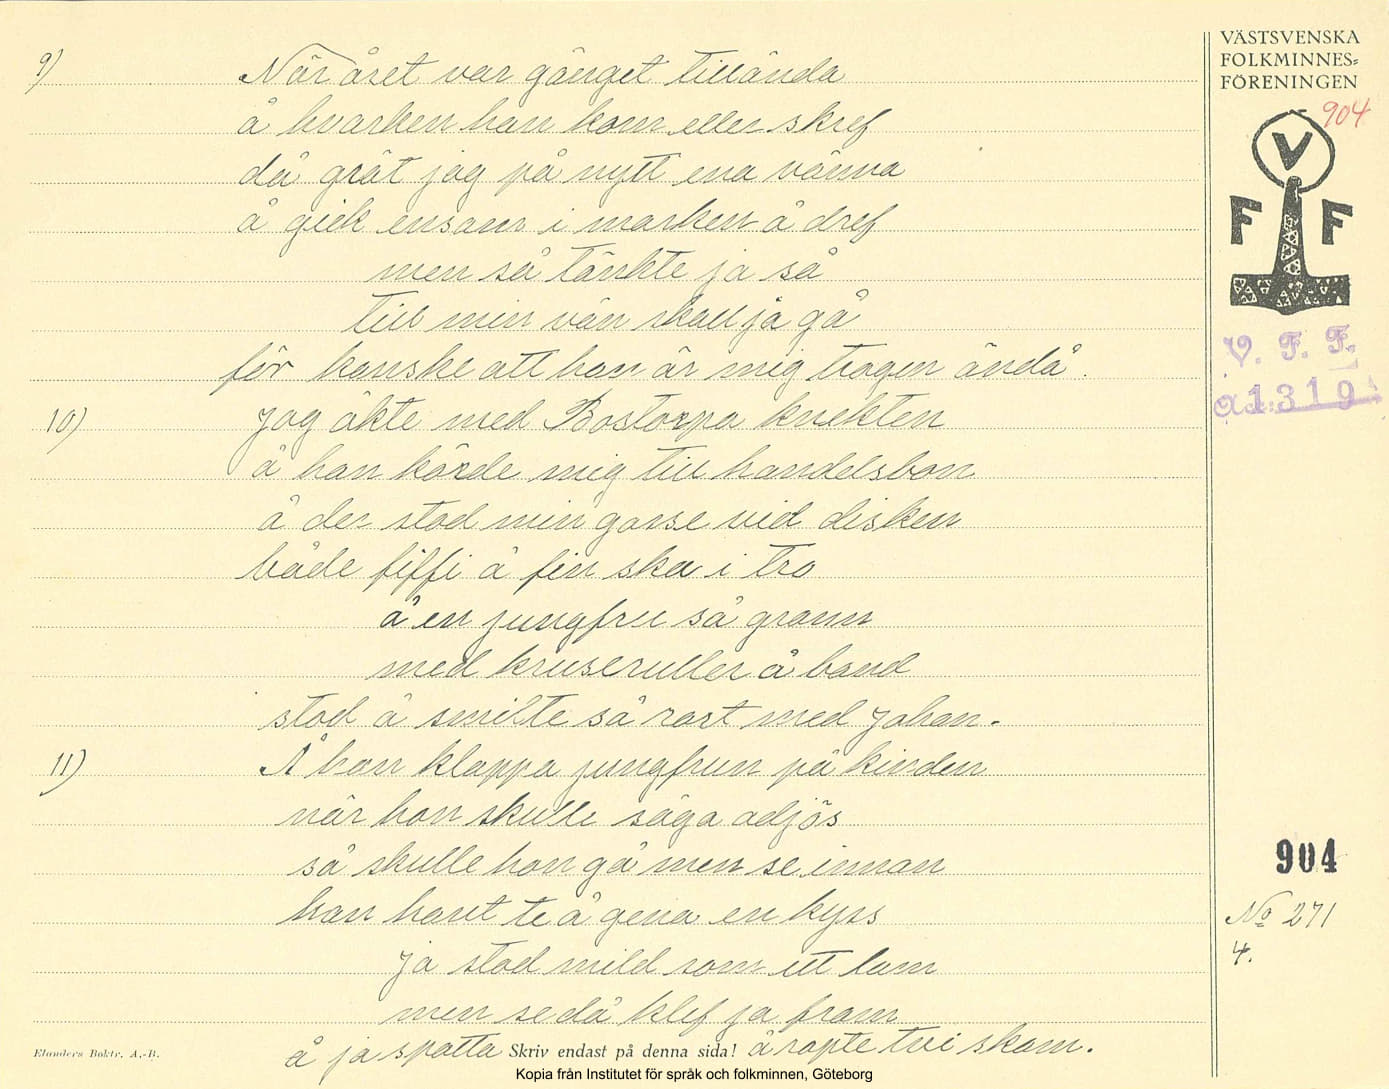 VÄSTSVENSKA
FOLKMINNES=
FÖRENINGEN
904
V
F F
V. F. F.
1319
9) När året var gånget tillända
å hvarken han kom eller skref
då grät jag på nytt ena vänna
å gick ensam i marken å dref
men så tänkte ja så
till min vän skall ja gå
för kanske att han är mig trogen ändå.
10) Jag åkte med Bostorpa knekten
å han körde mig till handelsbon
å der stod min gosse vid disken
både fiffi å fin ska i tro
å en jungfru så grann
med kruseruller å band
stod å smilte så rart med Johan.
11) Å han klappa jungfrun på kinden
när hon skulle säga adjös
så skulle hon gå men se innan
han hant te å gena en kyss
ja stod mild som ett lam
men se då klef ja fram
å ja spotta å ropte tvi skam.
904
No 271
4.
Elanders Boktr. A.-B.
Skriv endast på denna sida!
Kopia från Institutet för språk och folkminnen, Göteborg